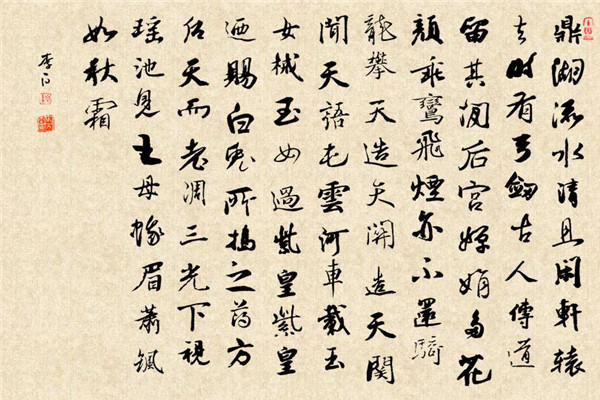 鼎湖流水清且閑軒轅
去時有弓劔古人傳道
留其間后宮嬋娟多花
顏乘鸞飛煙亦不還騎
龍攀天造天關造天関
聞天語屯雲河車載玉
女載玉女過紫皇紫皇
迺賜白兔所搗之葯方
后天而老凋三光下視
瑶池見王母蛾眉蕭颯
如秋霜
李白